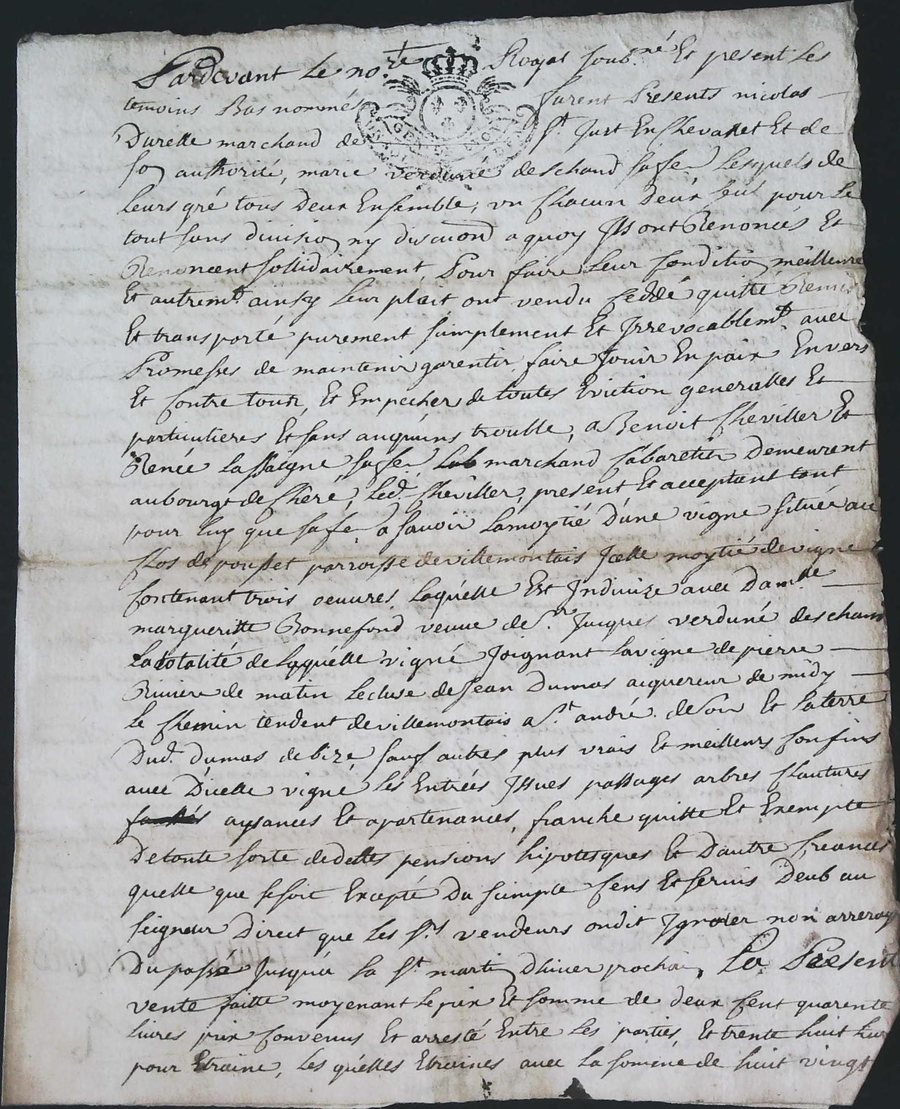 Pardevant Le no.re Royal soub.né Et present Les
temoins Bas nommés furent Presents nicolas
Durelle marchand de St Just En Chevallet Et de
so authorité, marie verduné deschand sa fe Lesquels de
Leurs gré tous Deux Ensemble, un chacun Deux seul pour Le
tout sans division ny discution a quoy Ils ont Renoncés Et
Renoncent sollidairement, Pour faire Leur condition meilleure
Et autrem.t ainsy Leur plait ont vendu ceddé quitté Remis
Et transporté purement simplement Et Irrevocablem.t avec
Promesses de maintenir garentir faire Jouir En paix Envers
Et Contre touts, Et Empecher de toutes Eviction generalles Et
particulieres Et sans auquuns trouble, a Benoit Cheviller Et
Renée Lassaigne sa fe marchand Cabaretier Demeurent
au bourgt de Cheré, Led. Cheviller, present Et acceptant tant
pour luy que sa fe a savoir Lamoytié D'une vigne située au
Clos de pousset parroisse de villemontais Icelle moytié de vigne
Contenant trois oeuvres, Laquelle Est Indivize avec Dam.lle
margueritte Bonnefond veuve de Sr Jacques verduné deschams
La totalité de Lqquelle vigne Joignant La vigne de pierre
Riviere de matin Lecluse de Jean Dumas aiquereur de midy
Le Chemin tendent de villemontais a St andré de soir Et La terre
Dud. Dumas de bize sauf autres plus vrais Et meilleurs Confins
avec Dicelle vigne Les Entrées Issues passages arbres Clautures
aysances Et apartenances, franche quitte Et Exempte
De toute sorte de dettes pensions hipotesques Et Dautre Creances
quelle que se soit Excepté Du simple Cens Et servis Deub au
seigneur Direct que Les Srs vendeurs ondit Ignorer non arreray
Du passé Jusqua La St martin D'hiver prochain, La Present
vente faitte moyenant Le prix Et somme de deux Cent quarente
Livres prix Convenus Et arresté Entre Les parties, Et trente huit Liv
pour Etraine, Les quelles Etraines avec La somme de huit vingt